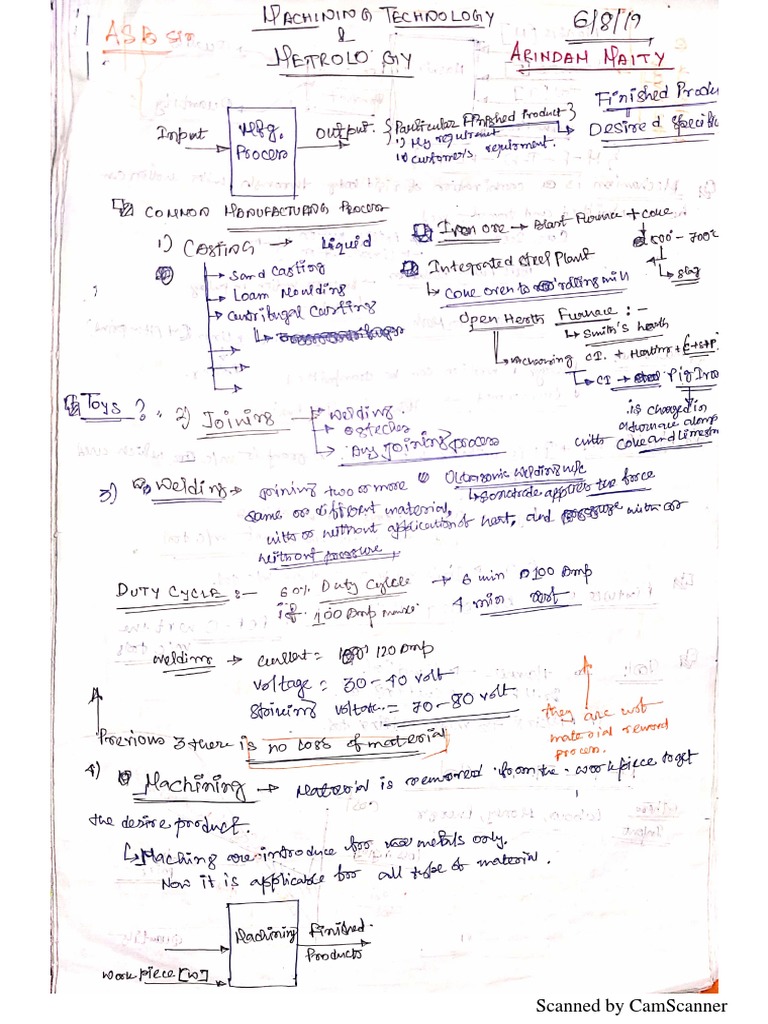 ASB Sir
MACHINING TECHNOLOGY
&
METROLOGY
6/8/19
ARINDAM MAITY
Input
Mfg.
Process
output:
{Particular Finished Product}
1) My requirement
customer's requirement.
Finished Produ
Desired Specific
COMMON MANUFACTURING PROCESS
1) CASTING → Liquid
Sand Casting
Loam Moulding
Centrifugal Casting
Iron ore → Blast Furnace + coke
500 - 700
slag
Integrated Steel Plant
Coke oven to rolling mill
Open Hearth Furnace :-
Smith's hearth
CI. + Heating + C+S+P
CI → Pig Iron
is charged in
furnace along
with coke and limestn
Toys ?
2) JOINING
Welding.
Any Joining process
3) Welding → Joining two or more
same or different material,
with or without application of heat, and pressure with or
without pressure.
Ultrasonic Welding m/c
Sonotrode applies the force
DUTY CYCLE :- 60% Duty Cycle → 6 min @100 Amp
if 100 Amp
4 min rest
welding → current = 120 Amp
voltage = 30-40 volt
voltage = 70-80 volt
Previous 3 there is no loss of material
they are not
material
process.
4) Machining → Material is removed from the workpiece to get
the desire product.
Maching are introduce for metals only.
Now it is applicable for all type of material.
Machining
Finished
Products
Work piece [W]
Scanned by CamScanner